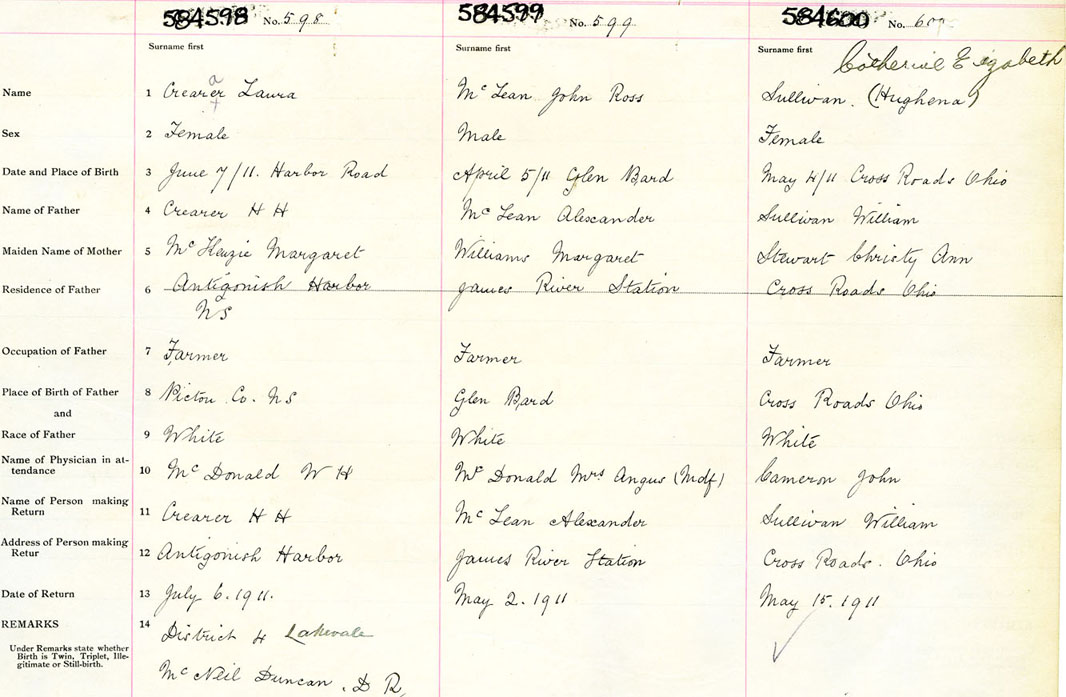 584598 No. 598 584599 No. 599 584600 No. 600
Surname first Surname first Surname first Catherine Elizabeth
Name 1 Crearer Laura Mc Lean John Ross Sullivan. (Hughena)
Sex 2 Female Male Female
Date and Place of Birth 3 June 7/11. Harbor Road April 5/11 Glen Bard May 4/11 Cross Roads Ohio
Name of Father 4 Crearer H H Mc Lean Alexander Sullivan William
Maiden Name of Mother 5 Mc Kenzie Margaret Williams Margaret Stewart Christy Ann
Residence of Father 6 Antigonish Harbor James River Station Cross Roads Ohio
NS
Occupation of Father 7 Farmer Farmer Farmer
Place of Birth of Father 8 Pictou Co. NS Glen Bard Cross Roads Ohio
and
Race of Father 9 White White White
Name of Physician in at-
tendance 10 Mc Donald W H Mc Donald Mrs Angus (Mdf) Cameron John
Name of Person making
Return 11 Crearer H H Mc Lean Alexander Sullivan William
Address of Person making
Retur 12 Antigonish Harbor James River Station Cross Roads. Ohio
Date of Return 13 July 6. 1911. May 2. 1911 May 15. 1911
REMARKS 14 District 4 Lakevale
Under Remarks state whether
Birth is Twin, Triplet, Ille-
gitimate or Still-birth.
Mc Neil Duncan. D R,